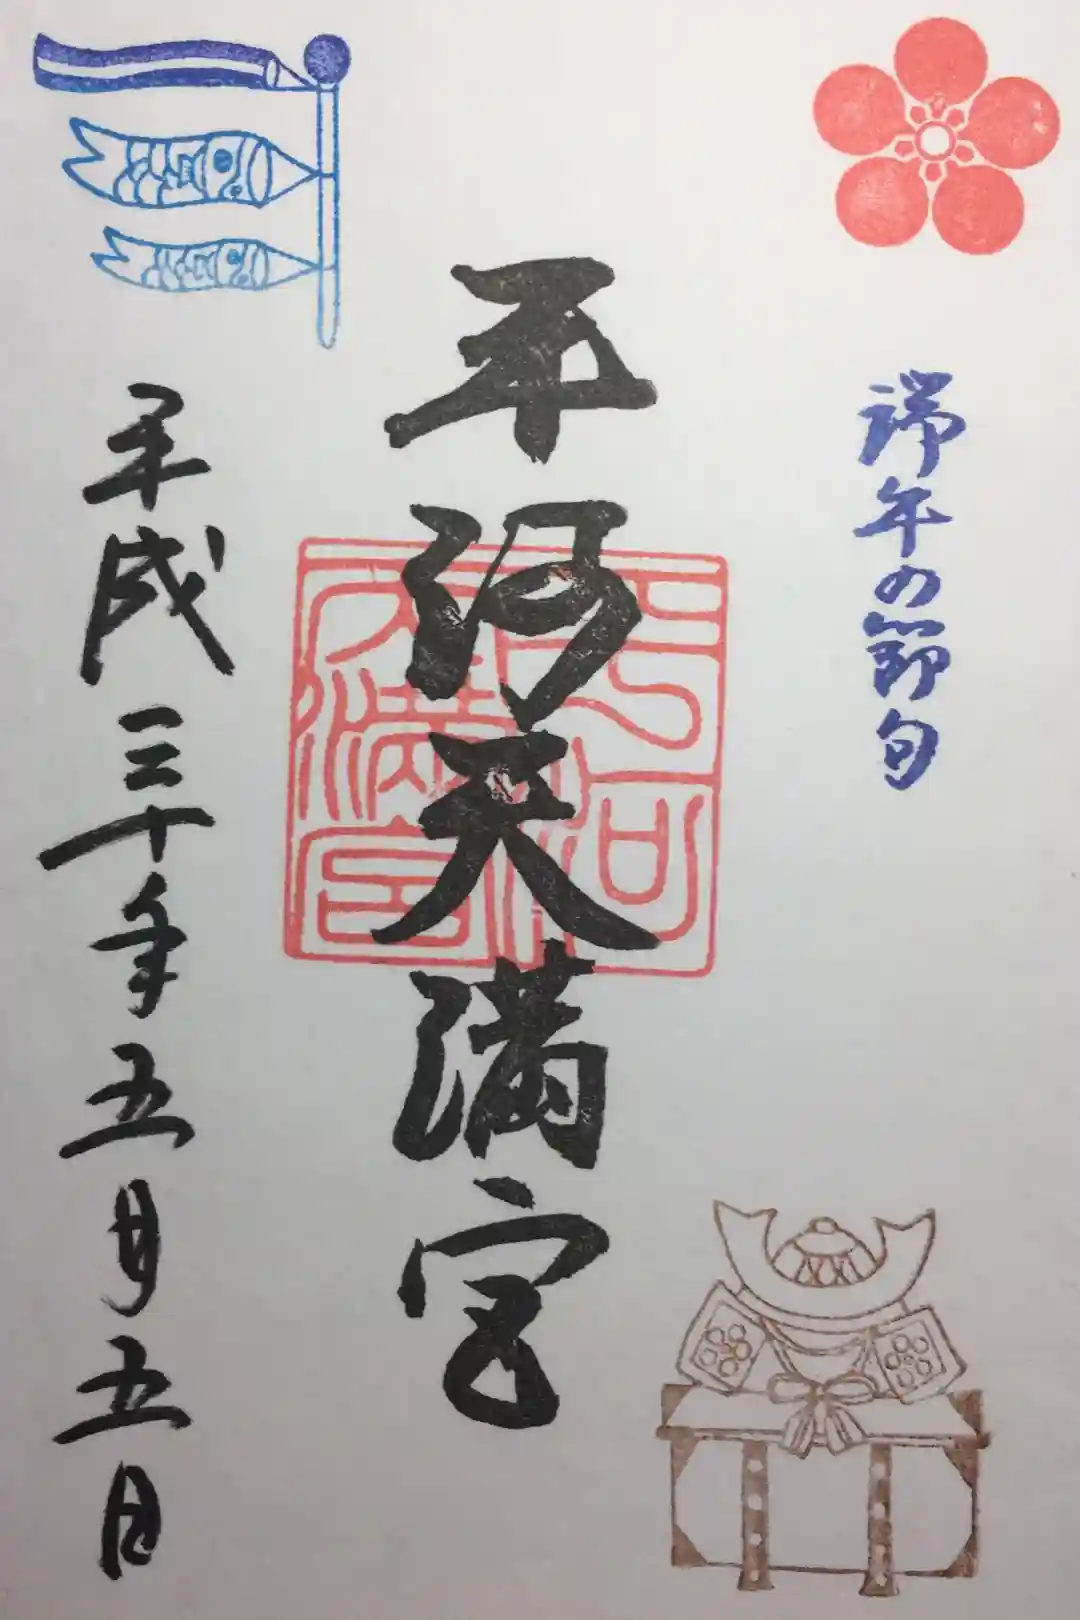 端午の節句
平河天満宮
平河天満宮
平成三十年五月五日